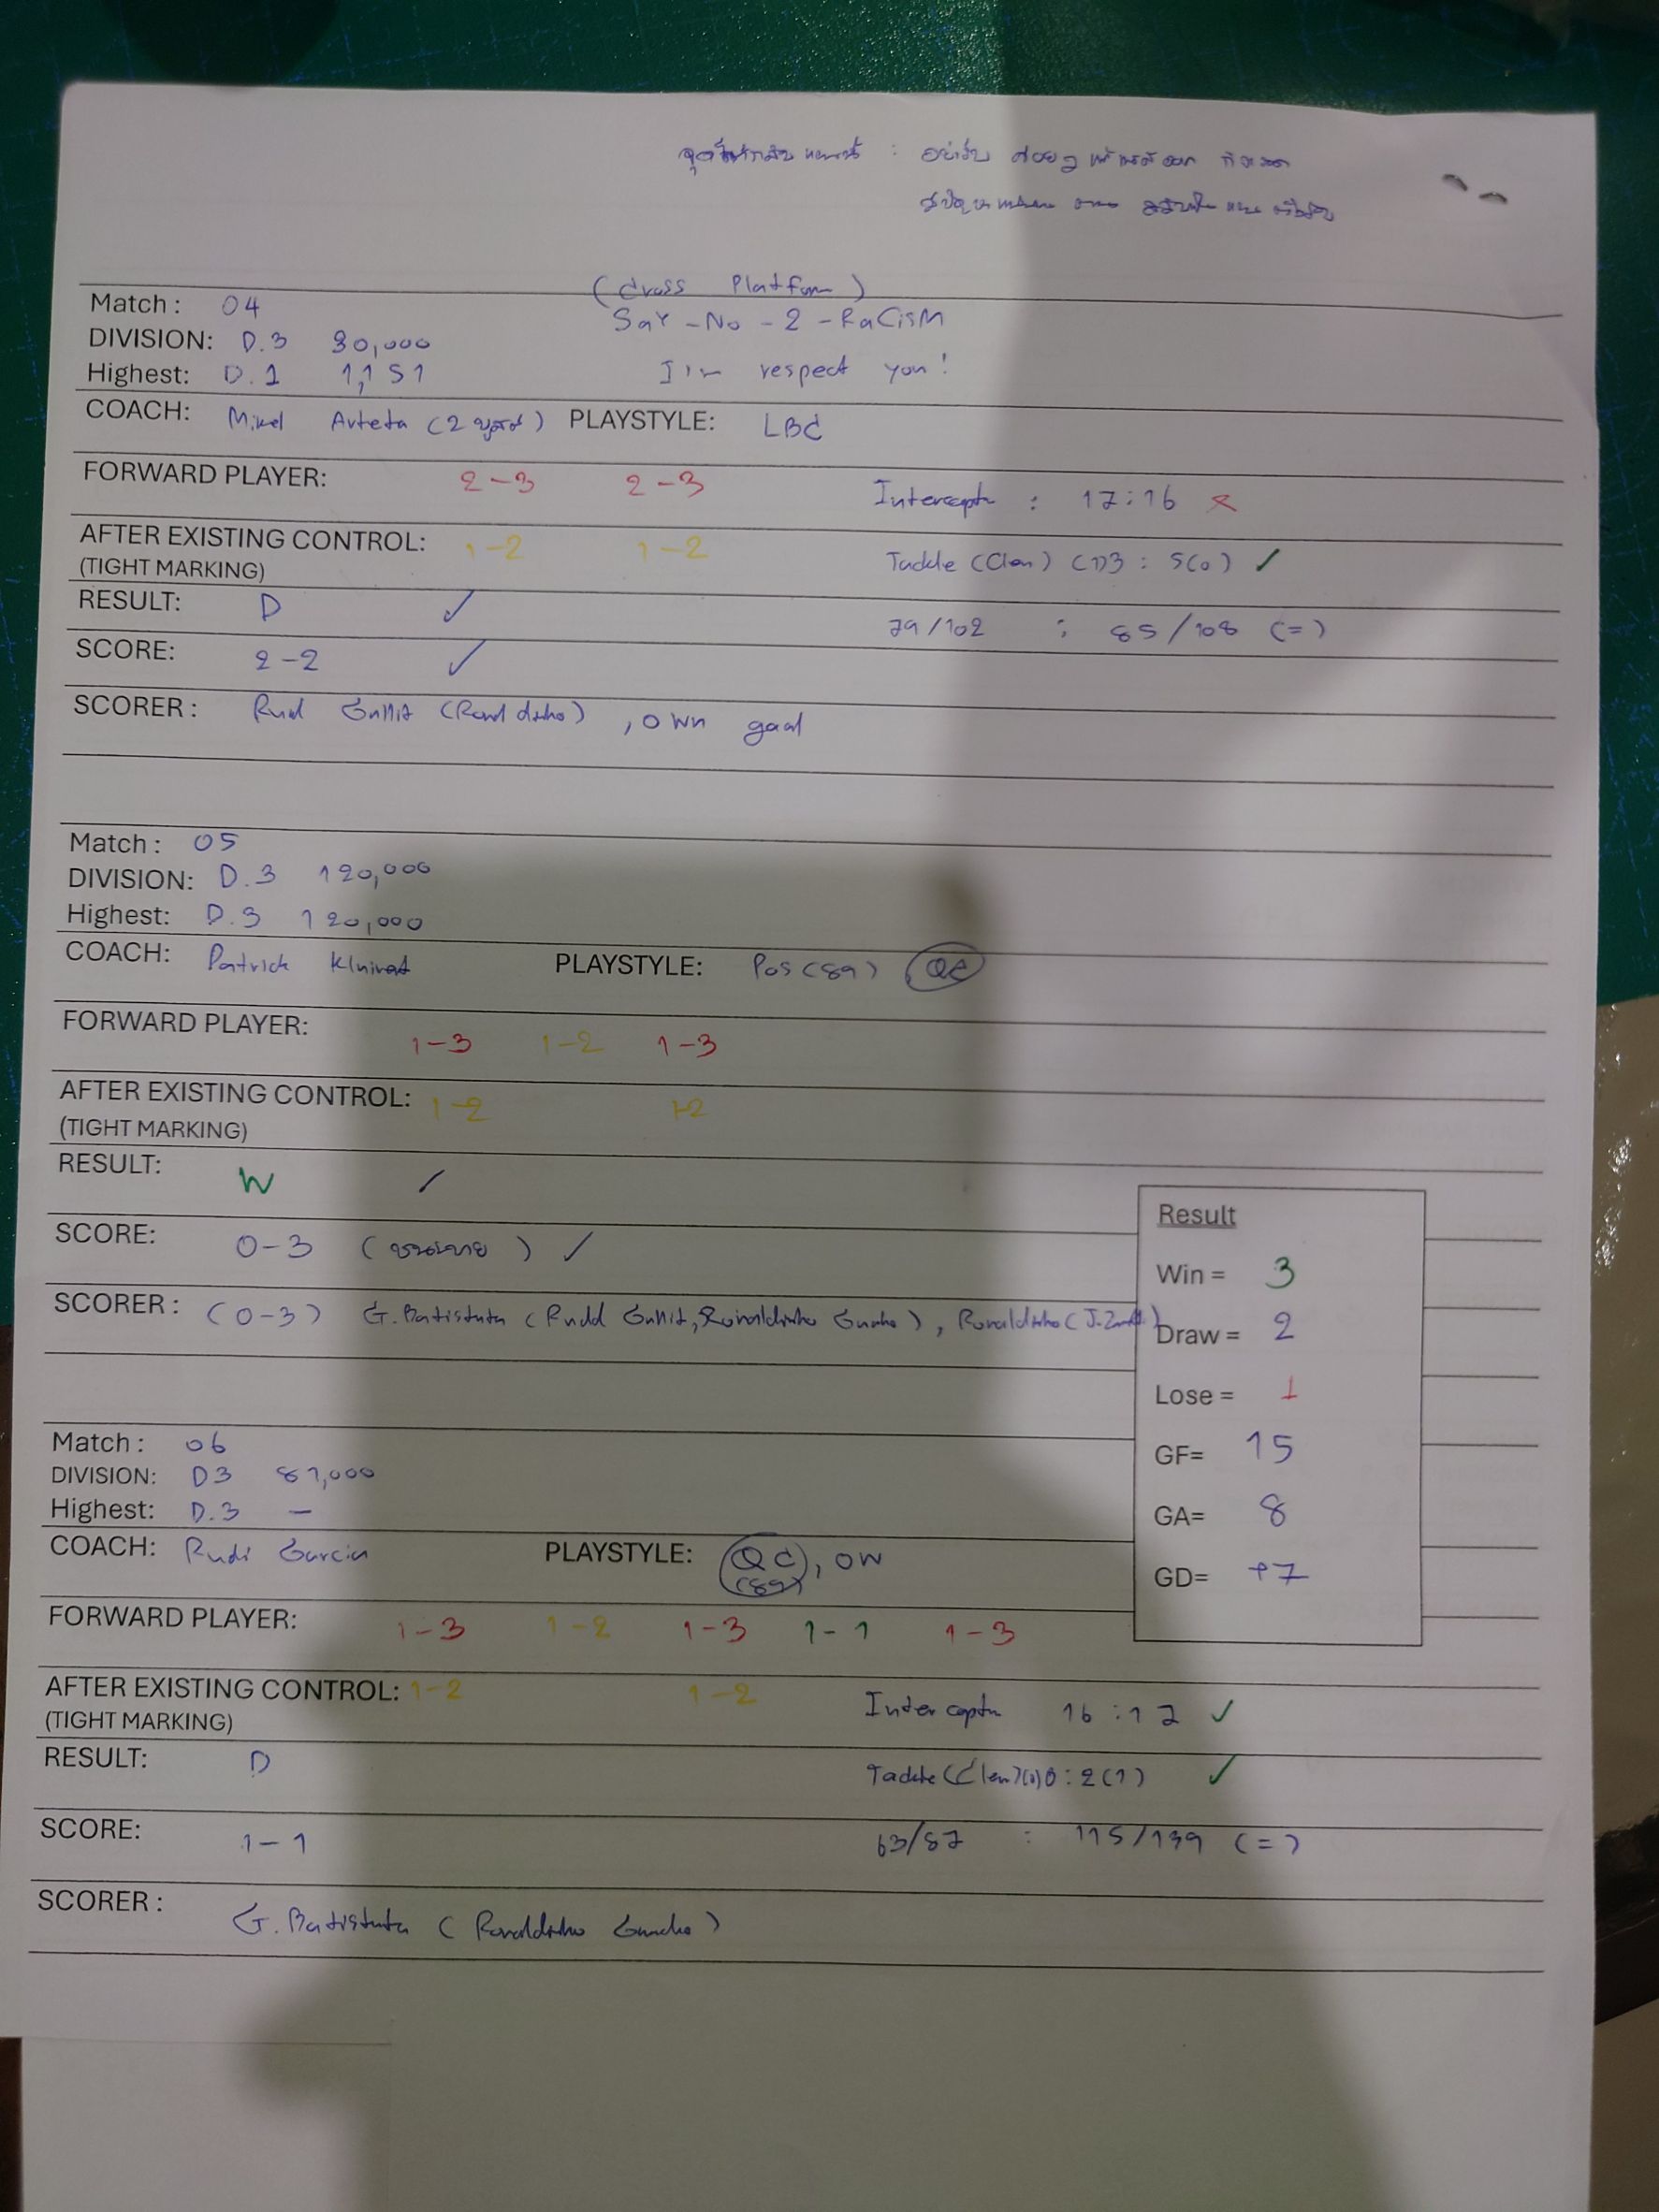 : อย่ารับ ค่อยๆ
(Cross Platform)
Match : 04
SaY-No-2-RaCisM
DIVISION: D.3 80,000
Highest: D.1 1,151 I'm respect you!
COACH: Mikel Arteta (2 บูสต์) PLAYSTYLE: LBC
FORWARD PLAYER: 2-3 2-3
Intercept : 17:16 x
AFTER EXISTING CONTROL: 1-2 1-2
(TIGHT MARKING)
Tackle (Clen) (1)3 : 5(0) ✓
RESULT: D ✓
79/102 : 85/108 (=)
SCORE: 2-2 ✓
SCORER : Rud Gullit (Ronaldinho), Own goal
Match : 05
DIVISION: D.3 120,000
Highest: D.3 120,000
COACH: Patrick Kluivert PLAYSTYLE: Pos (89) QC
FORWARD PLAYER: 1-3 1-2 1-3
AFTER EXISTING CONTROL: 1-2 1-2
(TIGHT MARKING)
RESULT: W ✓
SCORE: 0-3 ( ) ✓
SCORER : (0-3) G.Batistuta (Rudd Gullit, Ronaldinho Gaucho), Ronaldinho (J.
Result
Win = 3
Draw = 2
Lose = 1
GF= 15
GA= 8
GD= +7
Match : 06
DIVISION: D3 87,000
Highest: D.3 -
COACH: Rudi Garcia PLAYSTYLE: QC (89), OW
FORWARD PLAYER: 1-3 1-2 1-3 1-1 1-3
AFTER EXISTING CONTROL: 1-2 1-2
(TIGHT MARKING)
Intercept 16:17 ✓
RESULT: D
Tackle (Clen) (0)0 : 2(1) ✓
SCORE: 1-1
63/87 : 115/139 (=)
SCORER : G.Batistuta (Ronaldinho Gaucho)